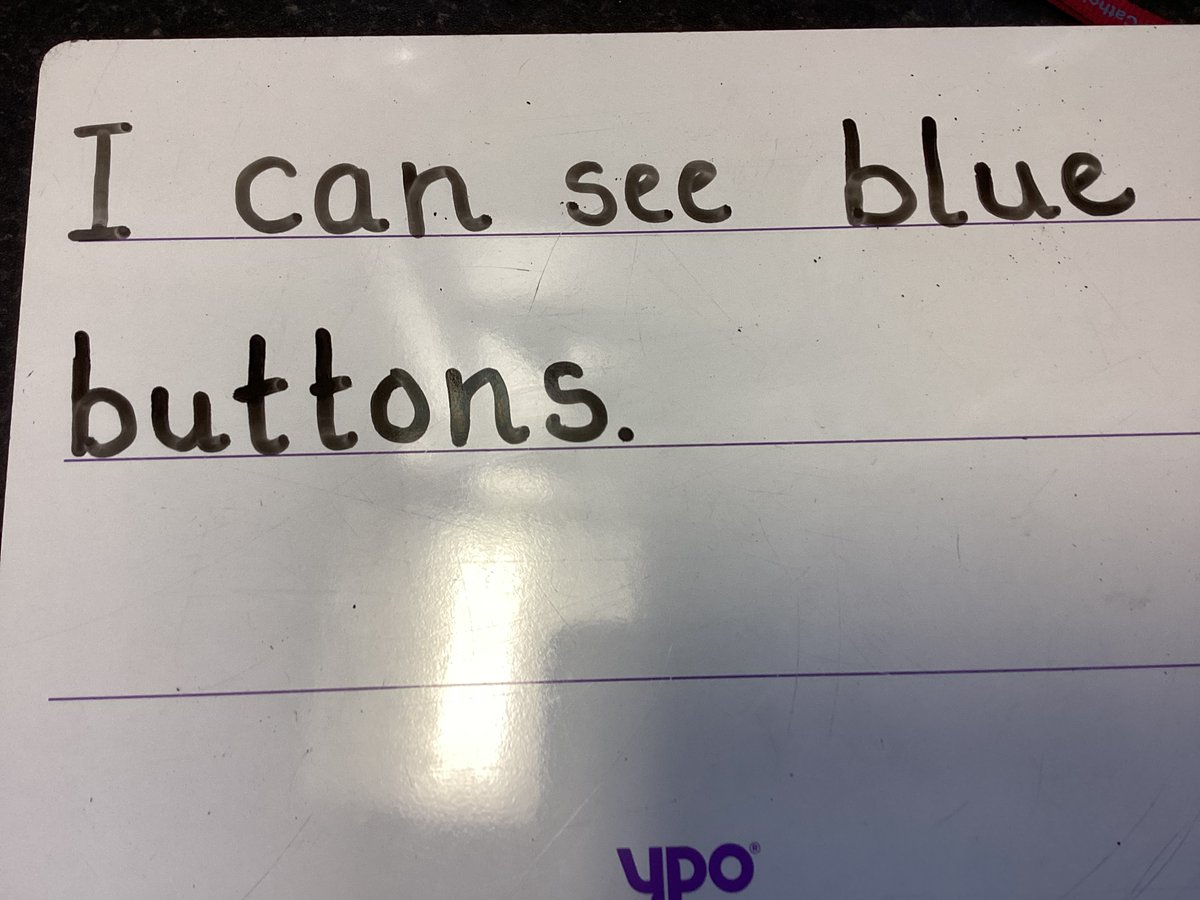 Catho
I can see blue
buttons.
ypo®